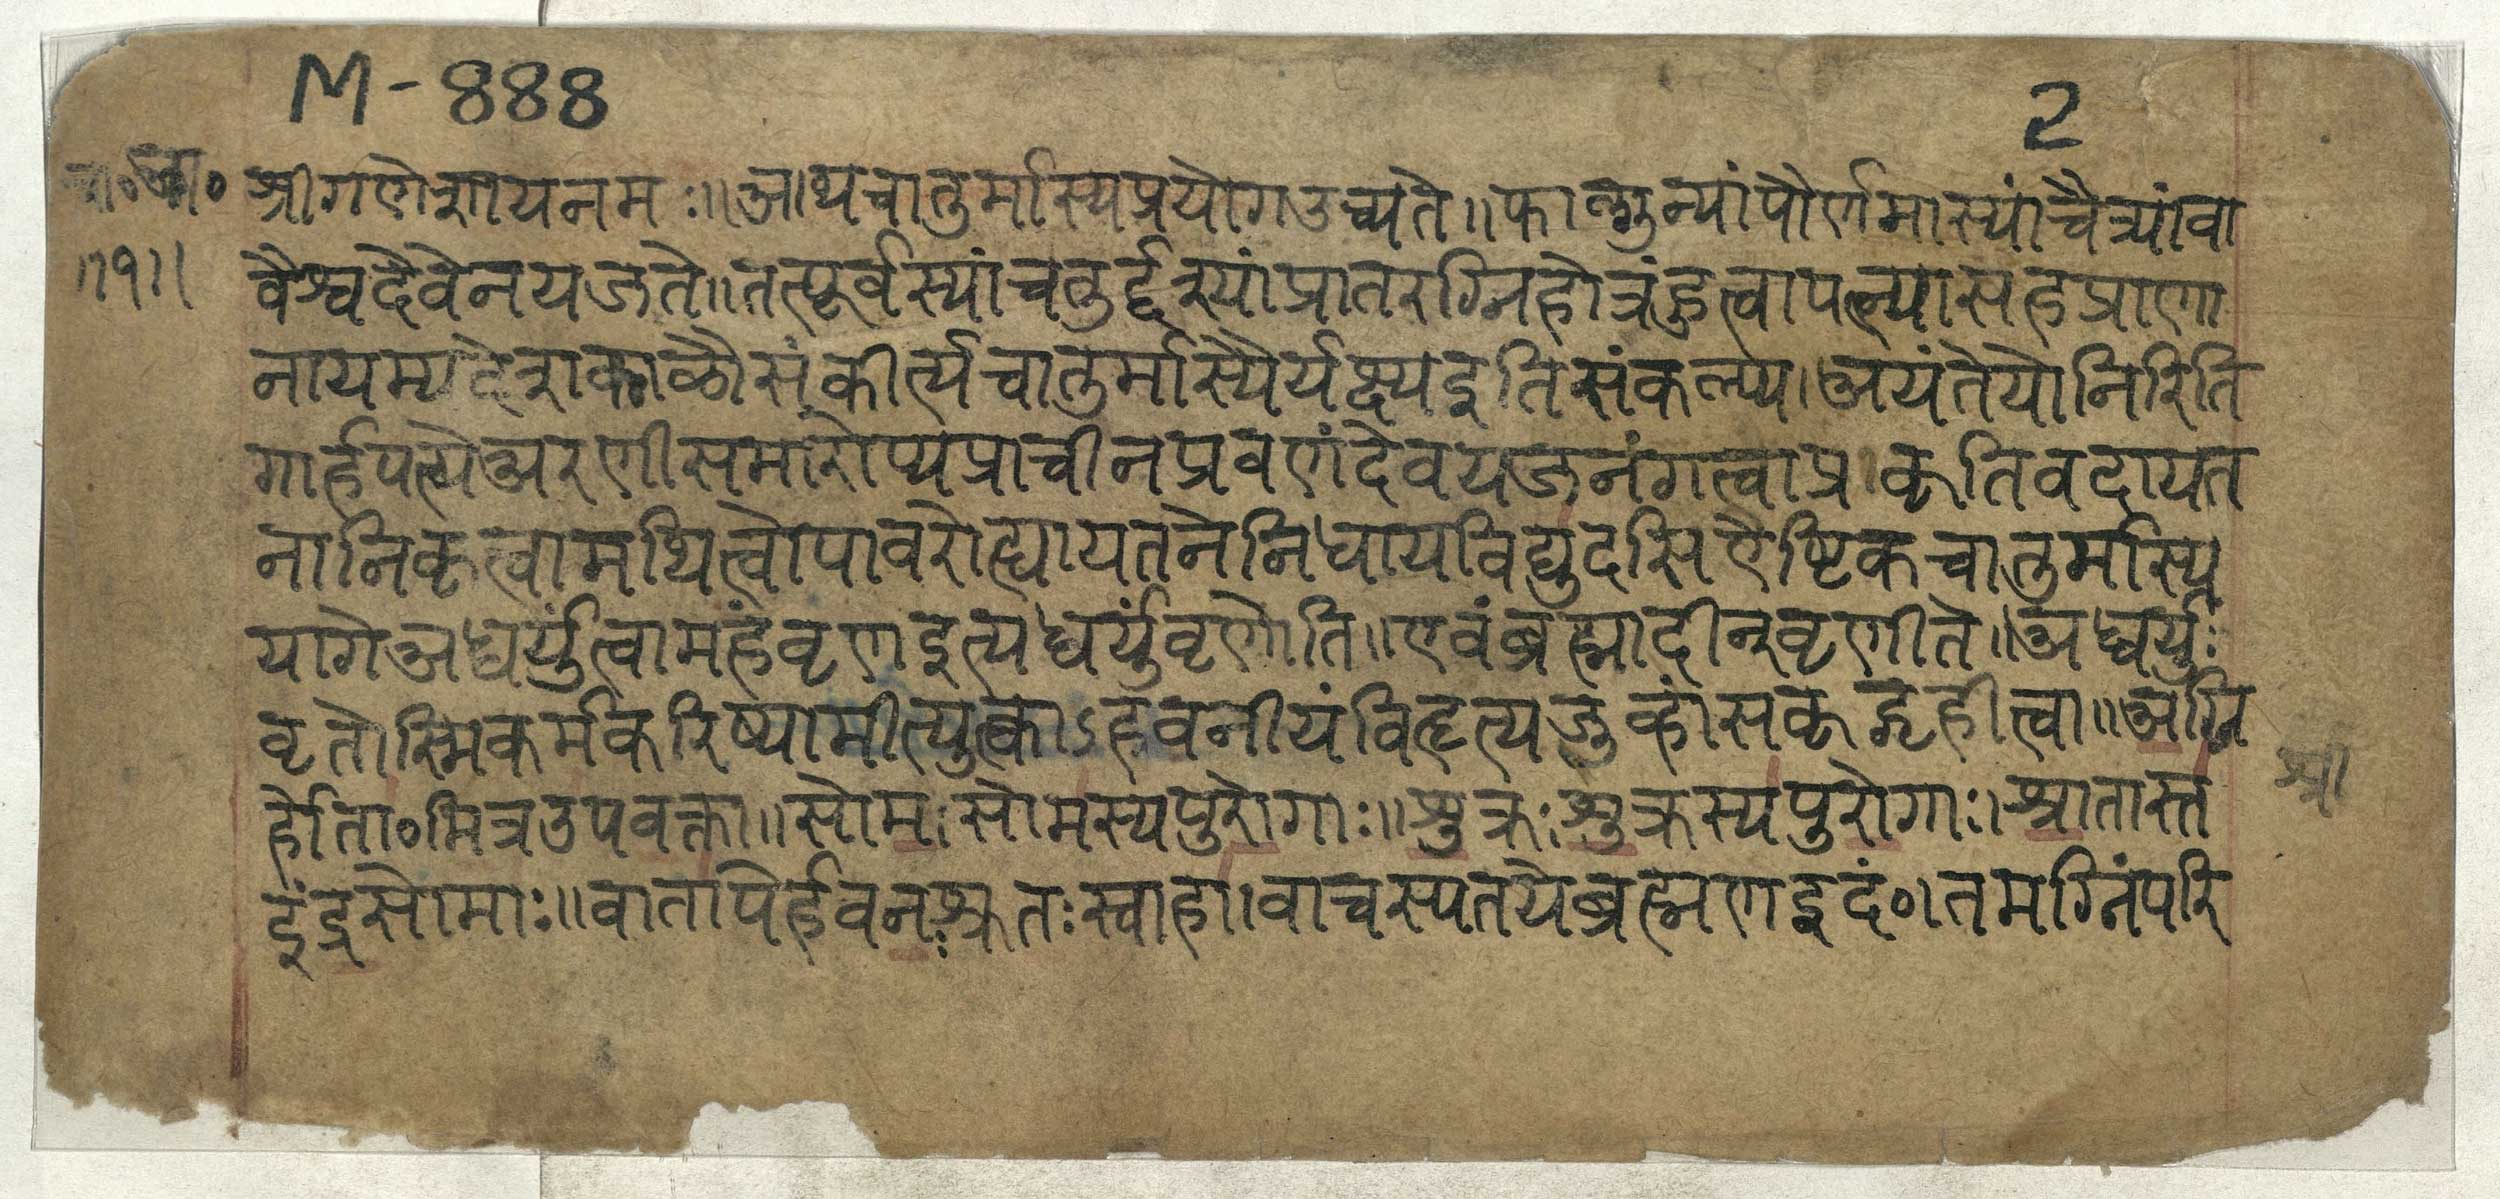 M-888
2
श्रीगणेशायनमः॥अथचातुर्मास्यप्रयोगउच्यते॥फाल्गुन्यांपौर्णमास्यांचैत्र्यांवा
॥१॥
वैश्वदेवेनयजते॥तत्पूर्वस्यांचतुर्द्दश्यांप्रातरग्निहोत्रंहुत्वापत्न्यासहप्राणा
नायम्यदेशकाळौसंकीर्त्यचातुर्मास्यैर्यक्ष्यइतिसंकल्प्य।अयंतेयोनिरिति
गार्हपत्येअरणीसमारोप्यप्राचीनप्रवणंदेवयजनंगत्वाप्रकृतिवदायत
नानिकृत्वामथित्वोपावरोह्यायतनेनिधायविद्युदसिऐष्टिकचातुर्मास्य
यागेअध्वर्युंत्वामहंवृणइत्यध्वर्युंवृणोति॥एवंब्रह्मादीन्वृणीते॥अध्वर्युः
वृतोस्मिकर्मकरिष्यामीत्युत्काऽहवनीयंविहृत्यजुव्हांसकृद्गृहीत्वा॥अग्नि
श्री
र्होता०मित्रउपवक्ता॥सोमःसोमस्यपुरोगाः॥शुक्रःशुक्रस्यपुरोगाः।श्रातास्त
इंद्रसोमाः॥वातापेर्हवनश्रुतःस्वाहा।वाचस्पतयेब्रह्मणइदं०।तमग्निंपरि